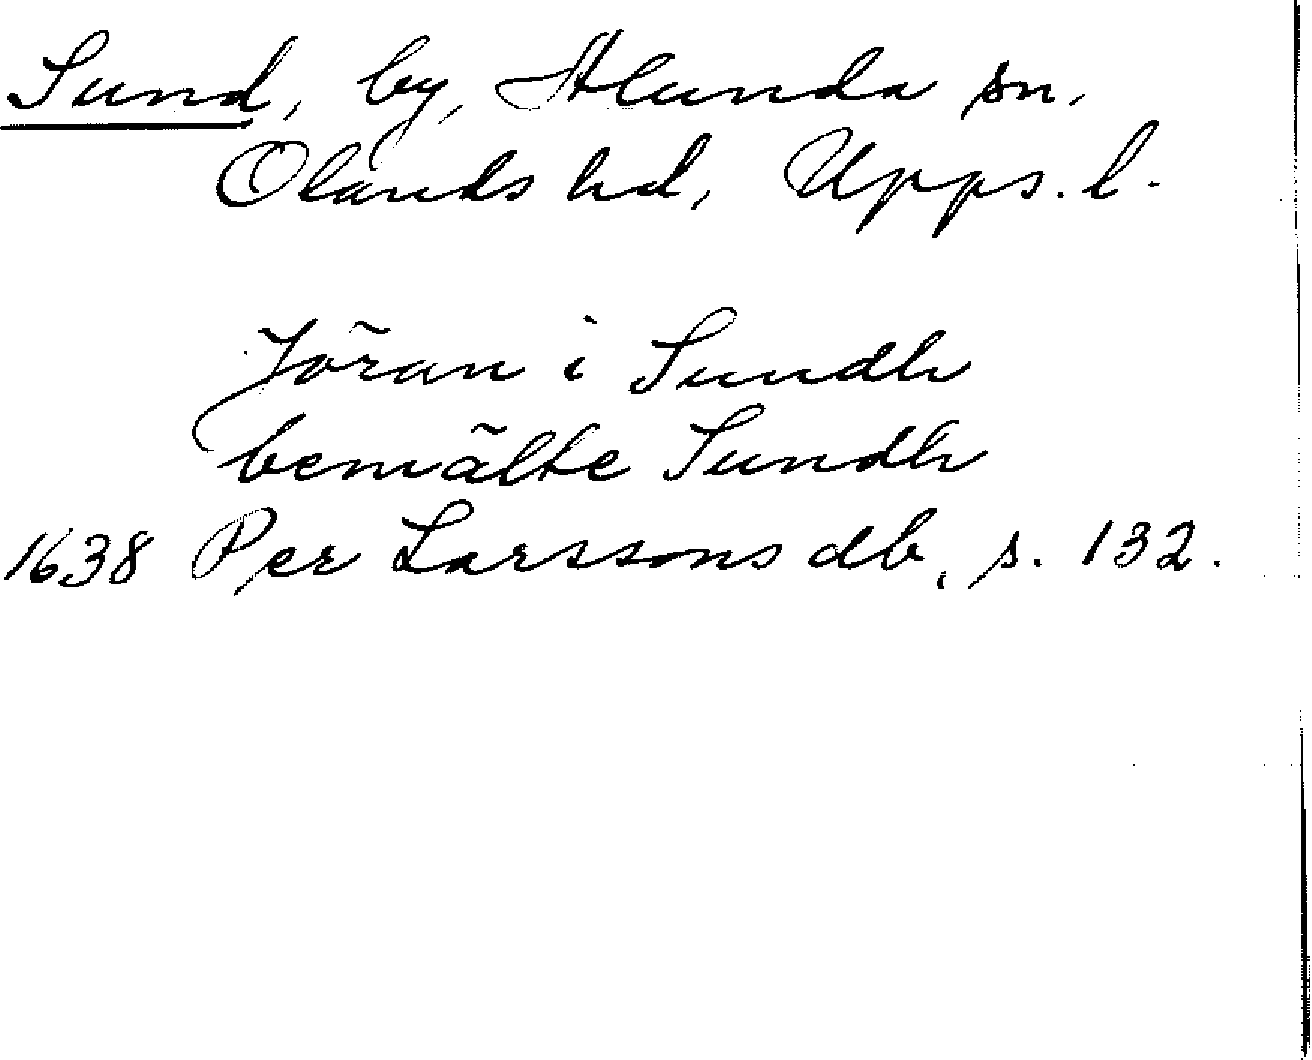 Sund, by, Alunda sn,
Olands hd, Upps. l.
Jöran i Sundh
bemälte Sundh
1638 Per Larssons db, s. 132.